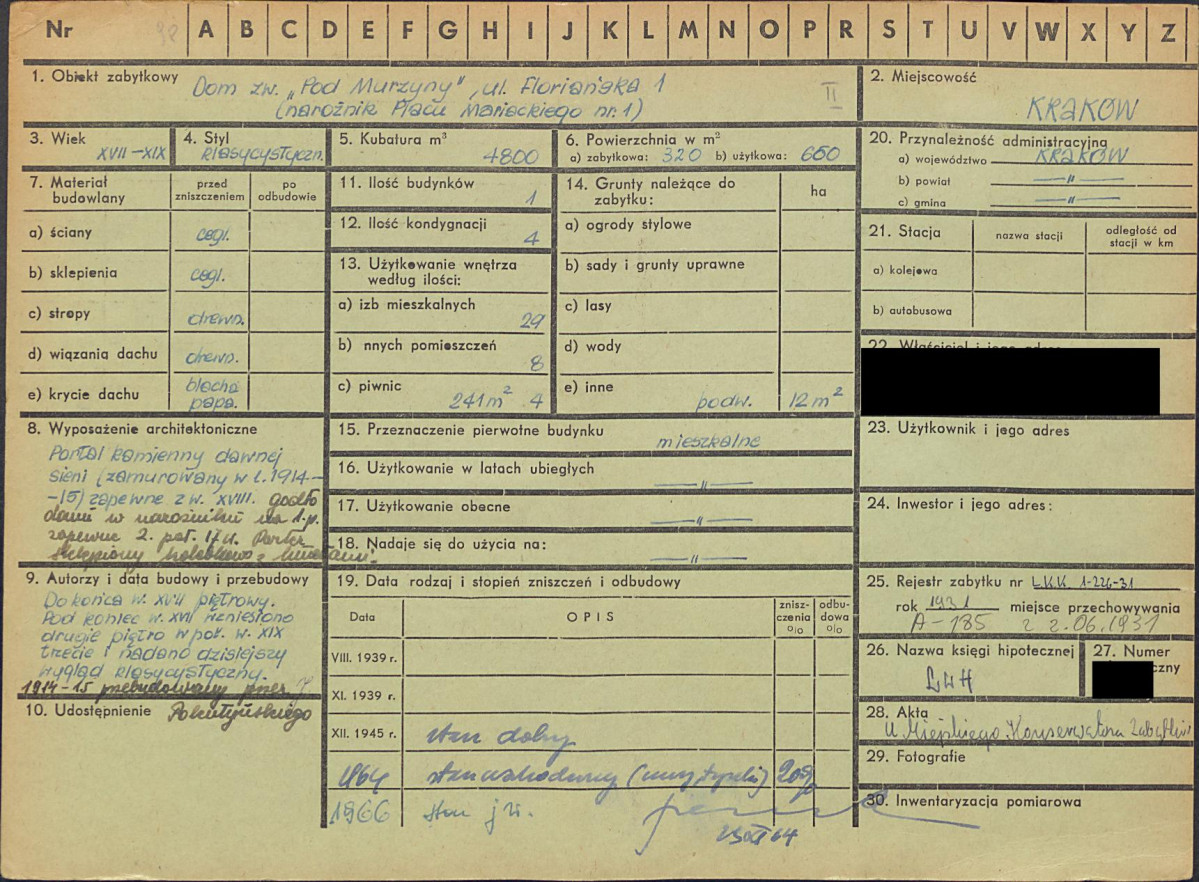 Nr A B C D E F G H I J K L M N O P R S T U V W X Y Z
1. Obiekt zabytkowy Dom zw. „Pod Murzyny", ul. Floriańska 1
(narożnik Placu Mariackiego nr. 1)
II
2. Miejscowość
KRAKÓW
3. Wiek
XVII-XIX
4. Styl
klasycystyczn.
5. Kubatura m³
4800
6. Powierzchnia w m²
a) zabytkowa: 320 b) użytkowa: 660
20. Przynależność administracyjna
a) województwo KRAKÓW
b) powiat —„—
c) gmina —„—
7. Materiał budowlany
przed zniszczeniem
po odbudowie
a) ściany cegl.
b) sklepienia cegl.
c) stropy drewn.
d) wiązania dachu drewn.
e) krycie dachu blacha
papa.
11. Ilość budynków
1
12. Ilość kondygnacji
4
13. Użytkowanie wnętrza
według ilości:
a) izb mieszkalnych
29
b) nnych pomieszczeń
8
c) piwnic
241 m² 4
14. Grunty należące do
zabytku:
ha
a) ogrody stylowe
b) sady i grunty uprawne
c) lasy
d) wody
e) inne
podw. 12 m²
21. Stacja
nazwa stacji
odległość od
stacji w km
a) kolejowa
b) autobusowa
8. Wyposażenie architektoniczne
Portal kamienny dawnej
sieni (zamurowany w l. 1914-
-15) zapewne z w. XVIII. godło
domu w narożniku na 1-p.
zapewne 2. poł. 17 w. Parter
sklepiony
15. Przeznaczenie pierwotne budynku
mieszkalne
16. Użytkowanie w latach ubiegłych
—„—
17. Użytkowanie obecne
—„—
18. Nadaje się do użycia na:
—„—
23. Użytkownik i jego adres
24. Inwestor i jego adres:
9. Autorzy i data budowy i przebudowy
Do końca w. XVII piętrowy.
Pod koniec w. XVII wzniesiono
drugie piętro w poł. w. XIX
trzecie i nadano dzisiejszy
wygląd klasycystyczny.
1914-15 przebudowany przez
Pokutyńskiego
10. Udostępnienie
19. Data rodzaj i stopień zniszczeń i odbudowy
Data
OPIS
znisz-
czenia
%
odbu-
dowa
%
VIII. 1939 r.
XI. 1939 r.
XII. 1945 r. stan dobry
1964 20%
1966 stan j.w.
23 XI 64
25. Rejestr zabytku nr L.K.K. 1-226-31
rok 1931 miejsce przechowywania
A-185 z 2.06.1931
26. Nazwa księgi hipotecznej
LWH
27. Numer
czny
28. Akta
U Miejskiego Konserwatora Zabytków
29. Fotografie
30. Inwentaryzacja pomiarowa